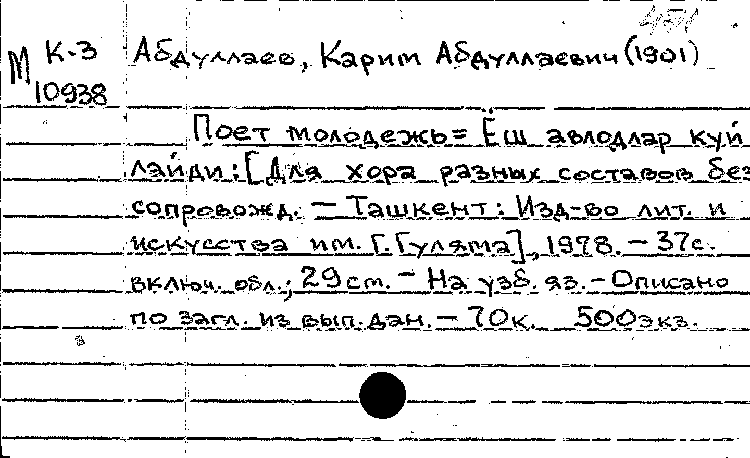 М К-3 Абдуллаев, Карим Абдуллаевич (1901)
10938
Поет молодежь = Ёш авлодлар куй
лайди: [Для хора разных составов без
сопровожд. — Ташкент: Изд-во лит. и
искусства им. Г. Гуляма], 1978. — 37с.
включ. обл.; 29см. — На узб. яз. — Описано
по загл. из вып. дан. — 70к. 500экз.